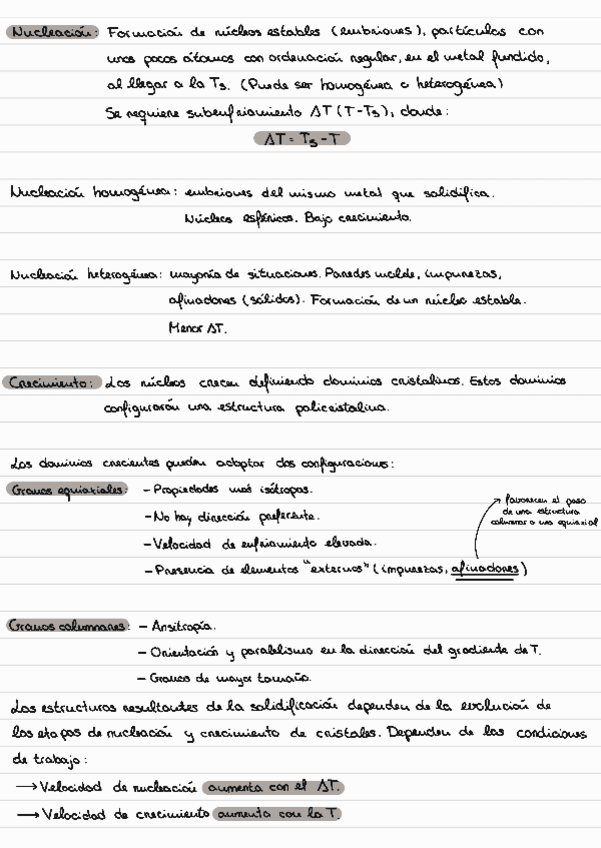 Nucleación: Formación de núcleos estables (embriones), partículas con
unos pocos átomos con ordenación regular, en el metal fundido,
al llegar a la Ts. (Puede ser homogénea o heterogénea)
Se requiere subenfriamiento ΔT (T-Ts), donde:
ΔT = Ts - T
Nucleación homogénea: embriones del mismo metal que solidifica.
Núcleos esféricos. Bajo crecimiento.
Nucleación heterogénea: mayoría de situaciones. Paredes molde, impurezas,
afinadores (sólidos). Formación de un núcleo estable.
Menor ΔT.
Crecimiento: Los núcleos crecen definiendo dominios cristalinos. Estos dominios
configurarán una estructura policristalina.
Los dominios crecientes pueden adoptar dos configuraciones:
Granos equiaxiales: - Propiedades más isótropas.
- No hay dirección preferente.
- Velocidad de enfriamiento elevada.
- Presencia de elementos "externos" (impurezas, afinadores)
favorecen el paso
de una estructura
columnar a una equiaxial
Granos columnares: - Ansitropía.
- Orientación y paralelismo en la dirección del gradiente de T.
- Granos de mayor tamaño.
Las estructuras resultantes de la solidificación dependen de la evolución de
las etapas de nucleación y crecimiento de cristales. Dependen de las condiciones
de trabajo:
→ Velocidad de nucleación aumenta con el ΔT.
→ Velocidad de crecimiento aumenta con la T.